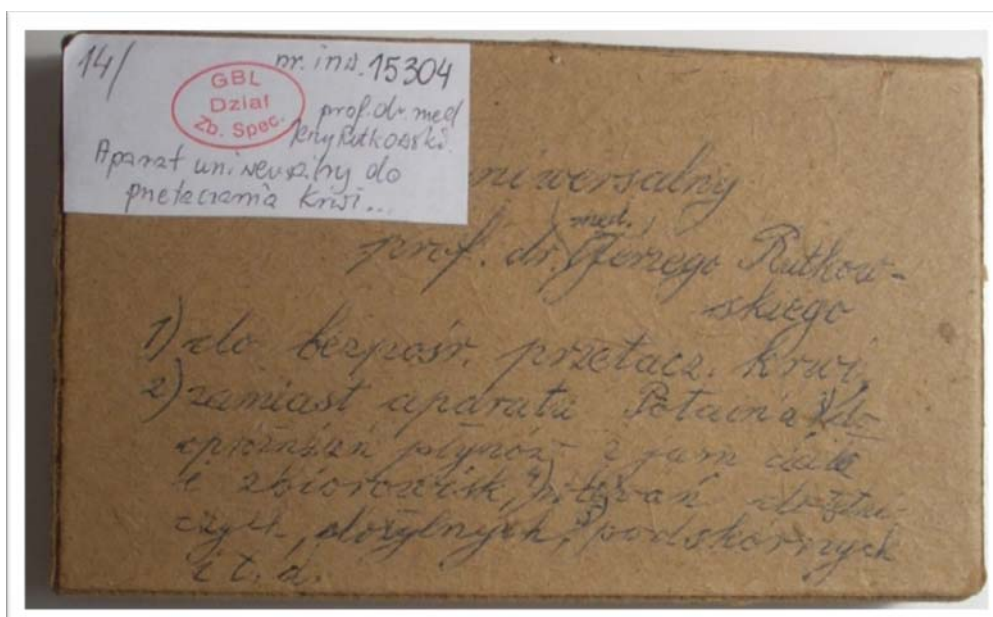 14/
nr. inw. 15304
GBL
Dział
Zb. Spec.
prof. dr. med
Jerzy Rutkowski.
Aparat uniwersalny do
przetaczania krwi...
niwersalny
med.
prof. dr. Jerzego Rutkow-
skiego
1) do bezpośr. przetacz. krwi,
2) zamiast aparatu Potain'a 3) do
opróżniań płynów z jam ciała
i zbiorowisk, 4) wlewań dożylni-
czych, dożylnych, 5) podskórnych
i t. d.